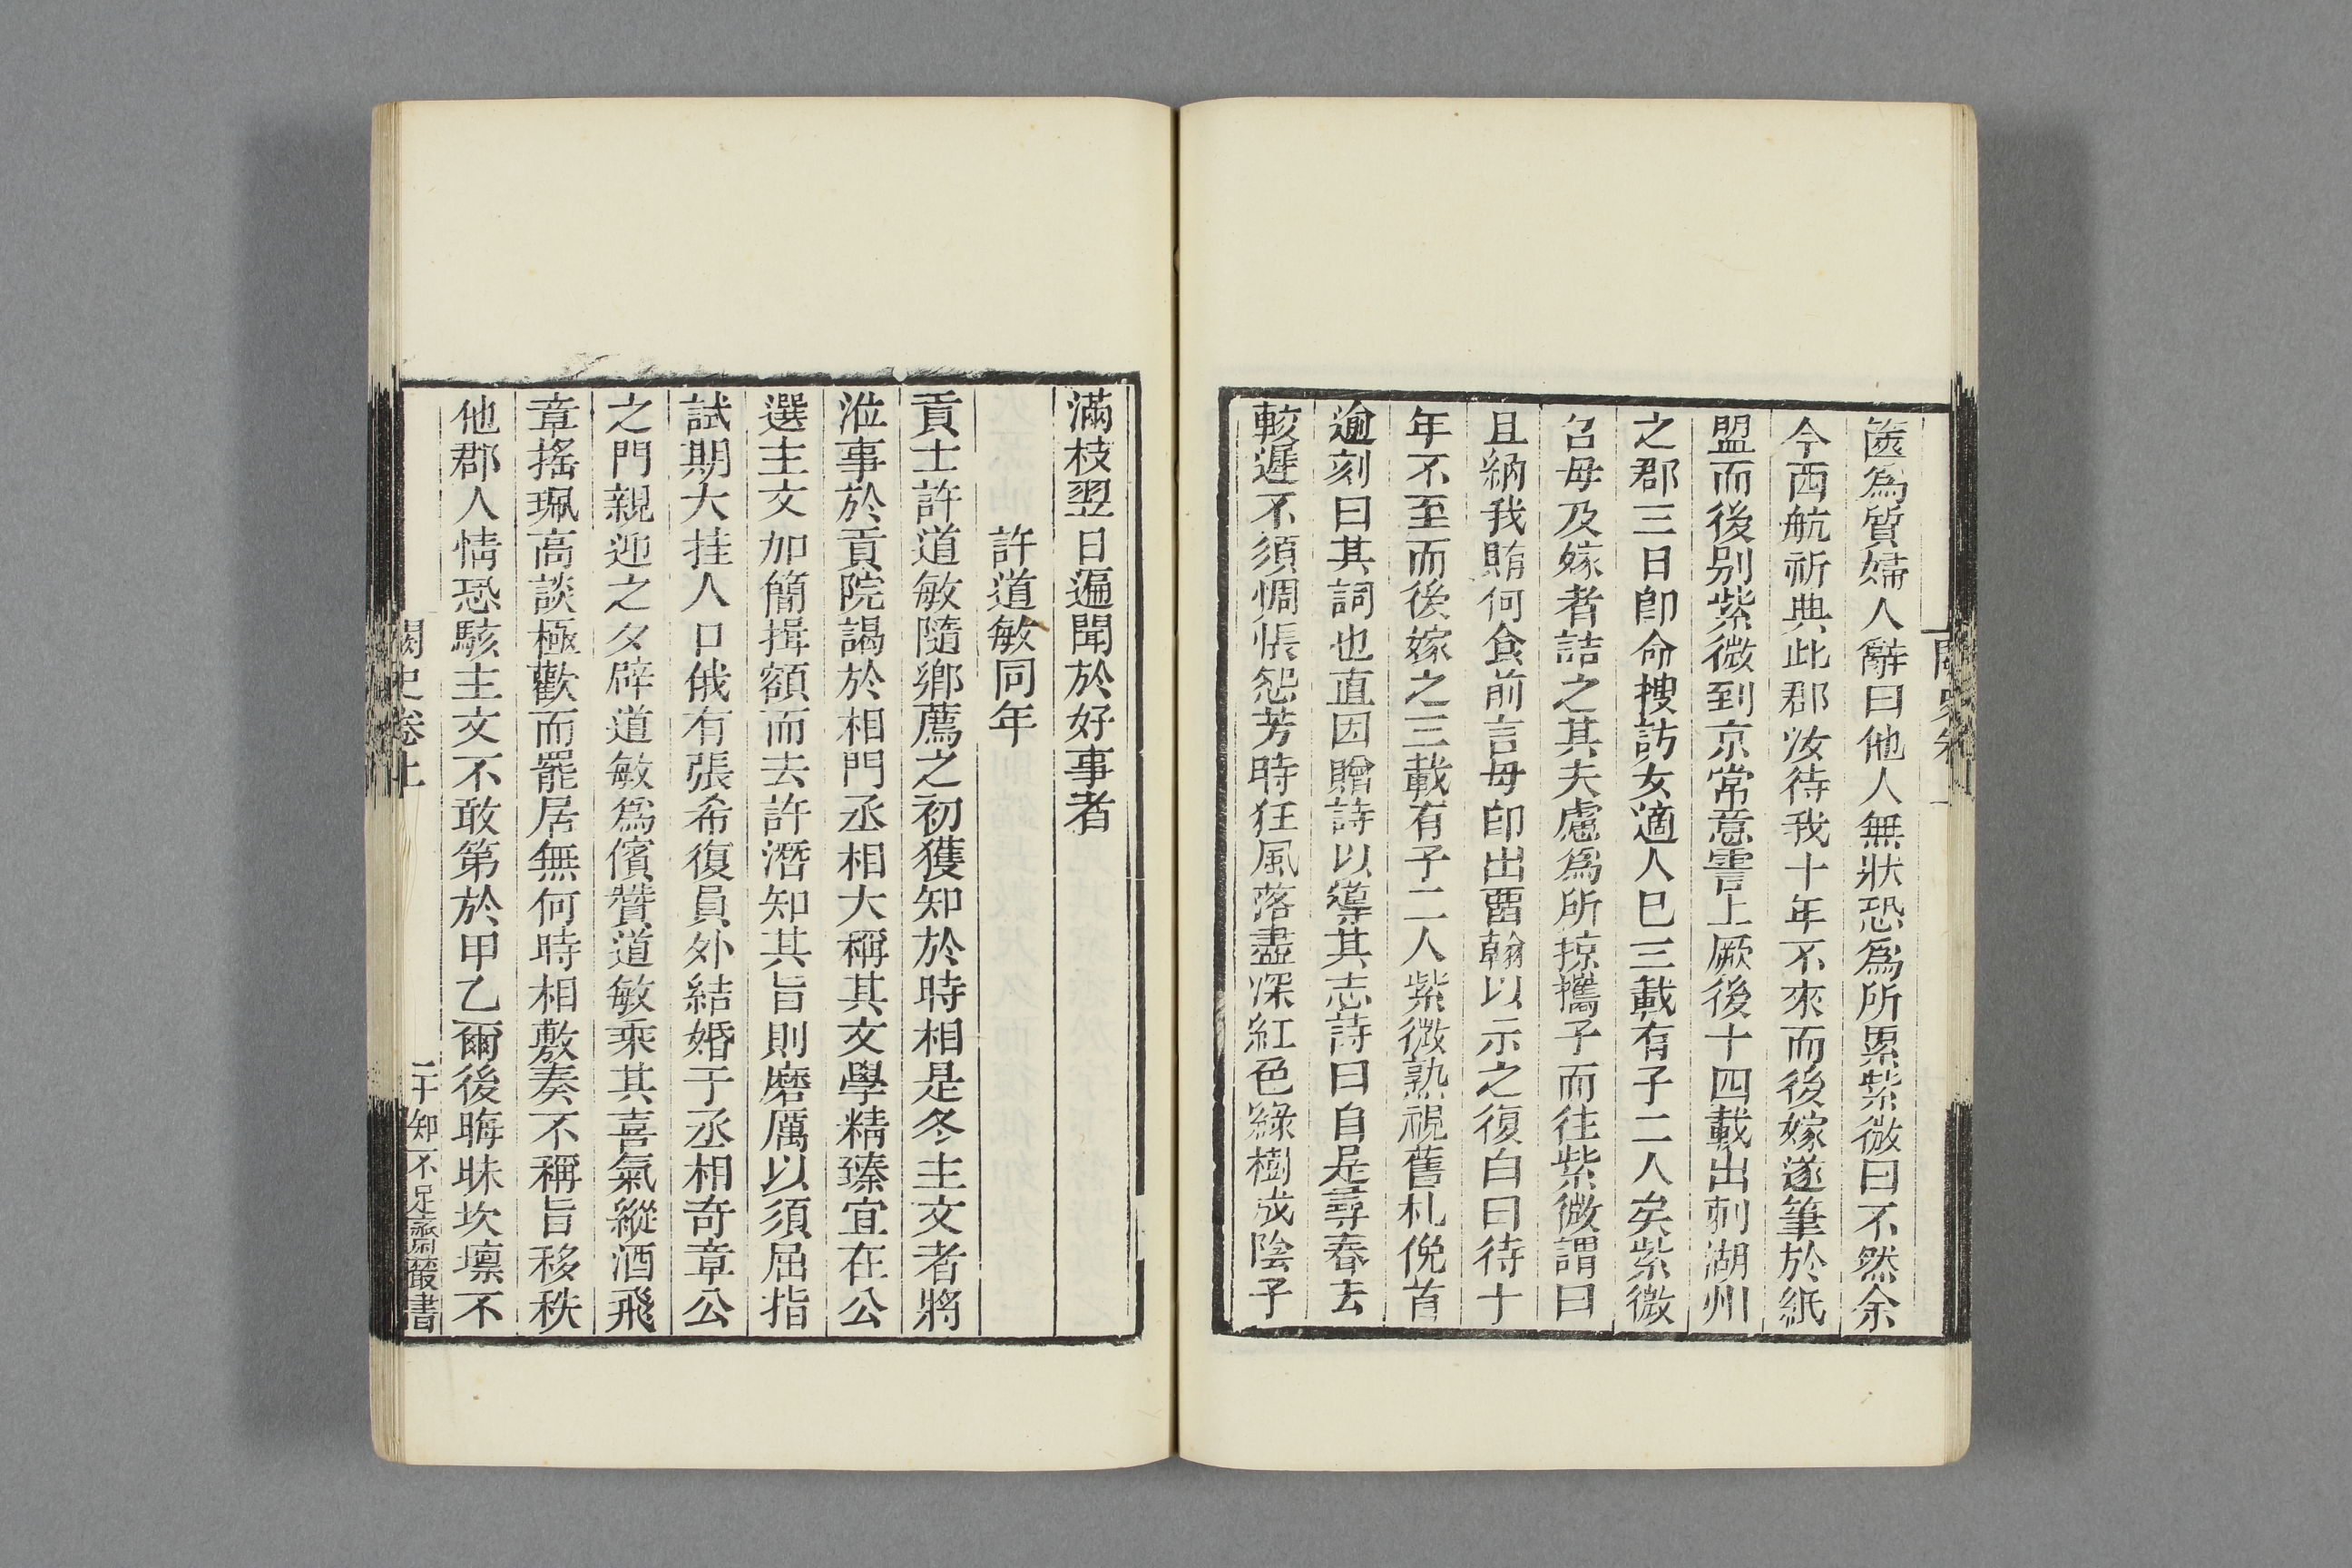 篋爲質婦人辭曰他人無狀恐爲所累紫微曰不然余
今西航祈典此郡汝待我十年不來而後嫁遂筆於紙
盟而後别紫微到京常意霅上厥後十四載出刺湖州
之郡三日卽命搜訪女適人已三載有子二人矣紫微
召母及嫁者詰之其夫慮爲所掠攜子而往紫微謂曰
且納我賄何食前言母卽出畱翰以示之復白曰待十
年不至而後嫁之三載有子二人紫微熟視舊札俛首
逾刻曰其詞也直因贈詩以導其志詩曰自是尋春去
較遲不須惆悵怨芳時狂風落盡深紅色綠樹成陰子
滿枝翌日遍聞於好事者
許道敏同年
貢士許道敏隨鄉薦之初獲知於時相是冬主文者將
涖事於貢院謁於相門丞相大稱其文學精臻宜在公
選主文加簡揖額而去許潛知其旨則磨厲以須屈指
試期大挂人口俄有張希復員外結婚于丞相奇章公
之門親迎之夕辟道敏爲儐贊道敏乘其喜氣縱酒飛
章搖珮高談極歡而罷居無何時相敷奏不稱旨移秩
他郡人情恐駭主文不敢第於甲乙爾後晦昧坎壈不
闕史卷上
二十 知不足齋叢書